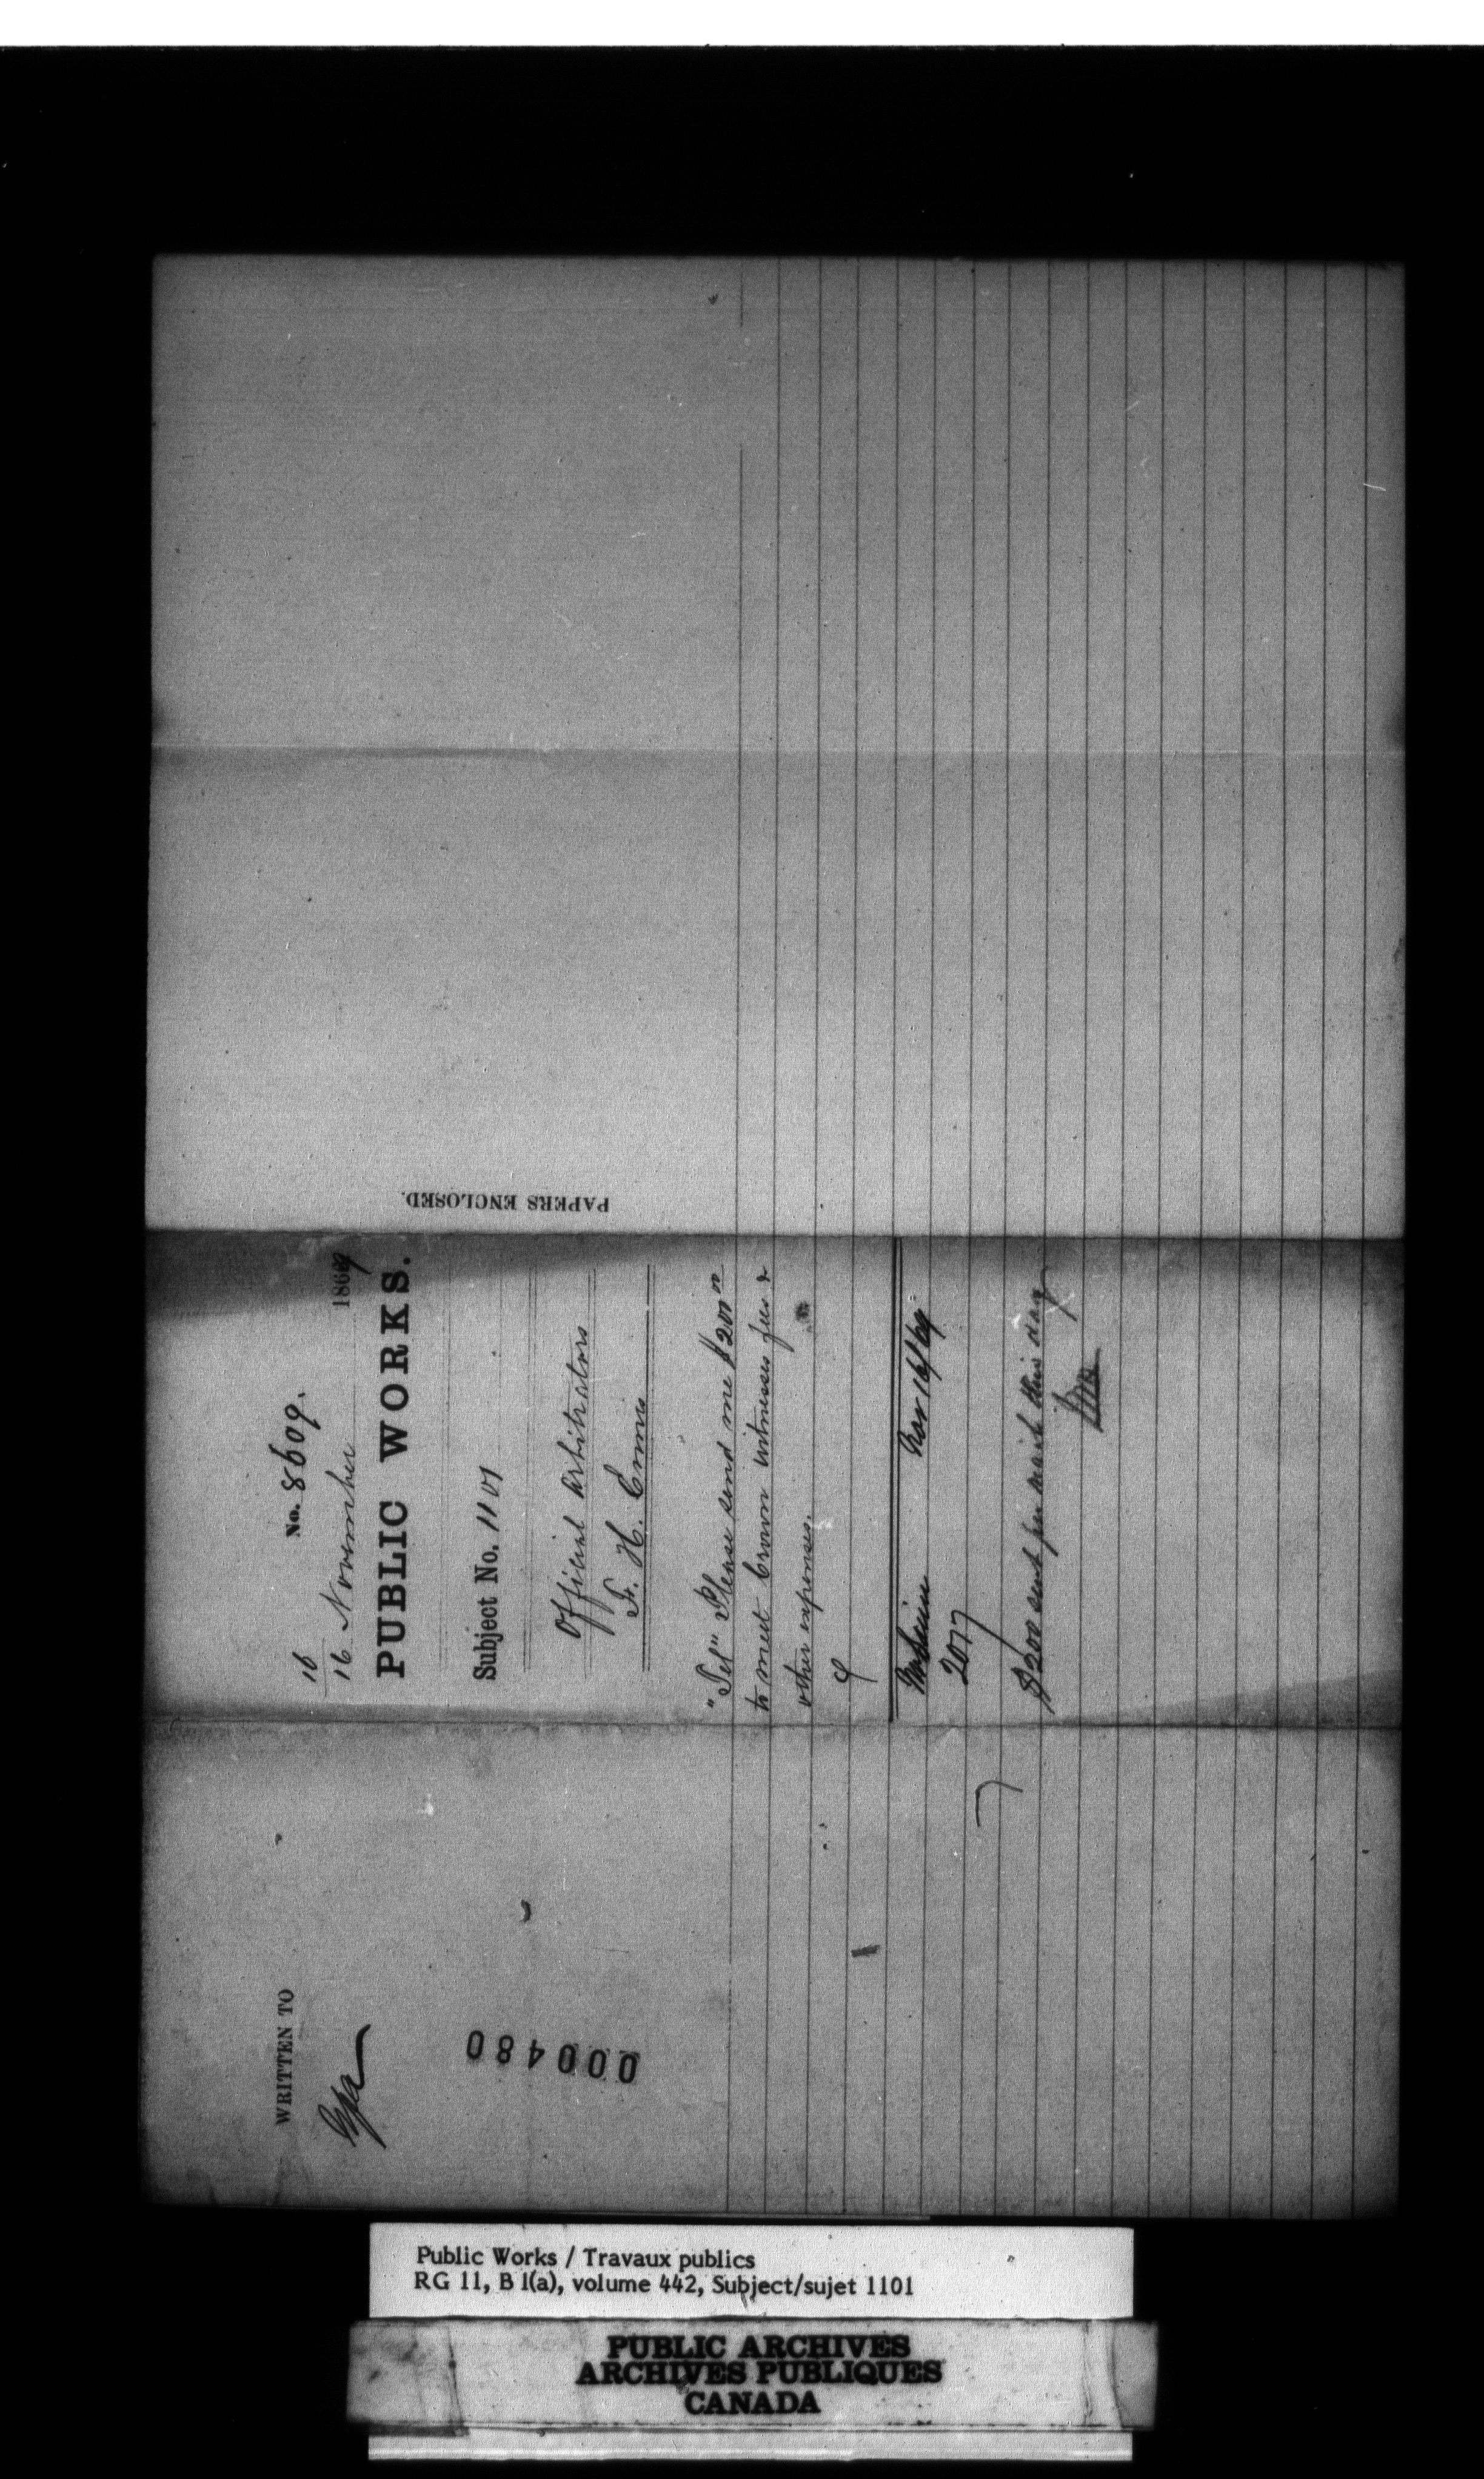 No. 8609.
16
16 November 1869
PUBLIC WORKS.
Subject No. 1101
Official Arbitrators
F. H. Ennis
"Tel" Please send me $200 00
to meet Crown witnesses fees &
other expenses.
Nov 16/69
2077
$200 sent per mail this day
PAPERS ENCLOSED.
WRITTEN TO
000480
Public Works / Travaux publics
RG 11, B 1(a), volume 442, Subject/sujet 1101
PUBLIC ARCHIVES
ARCHIVES PUBLIQUES
CANADA